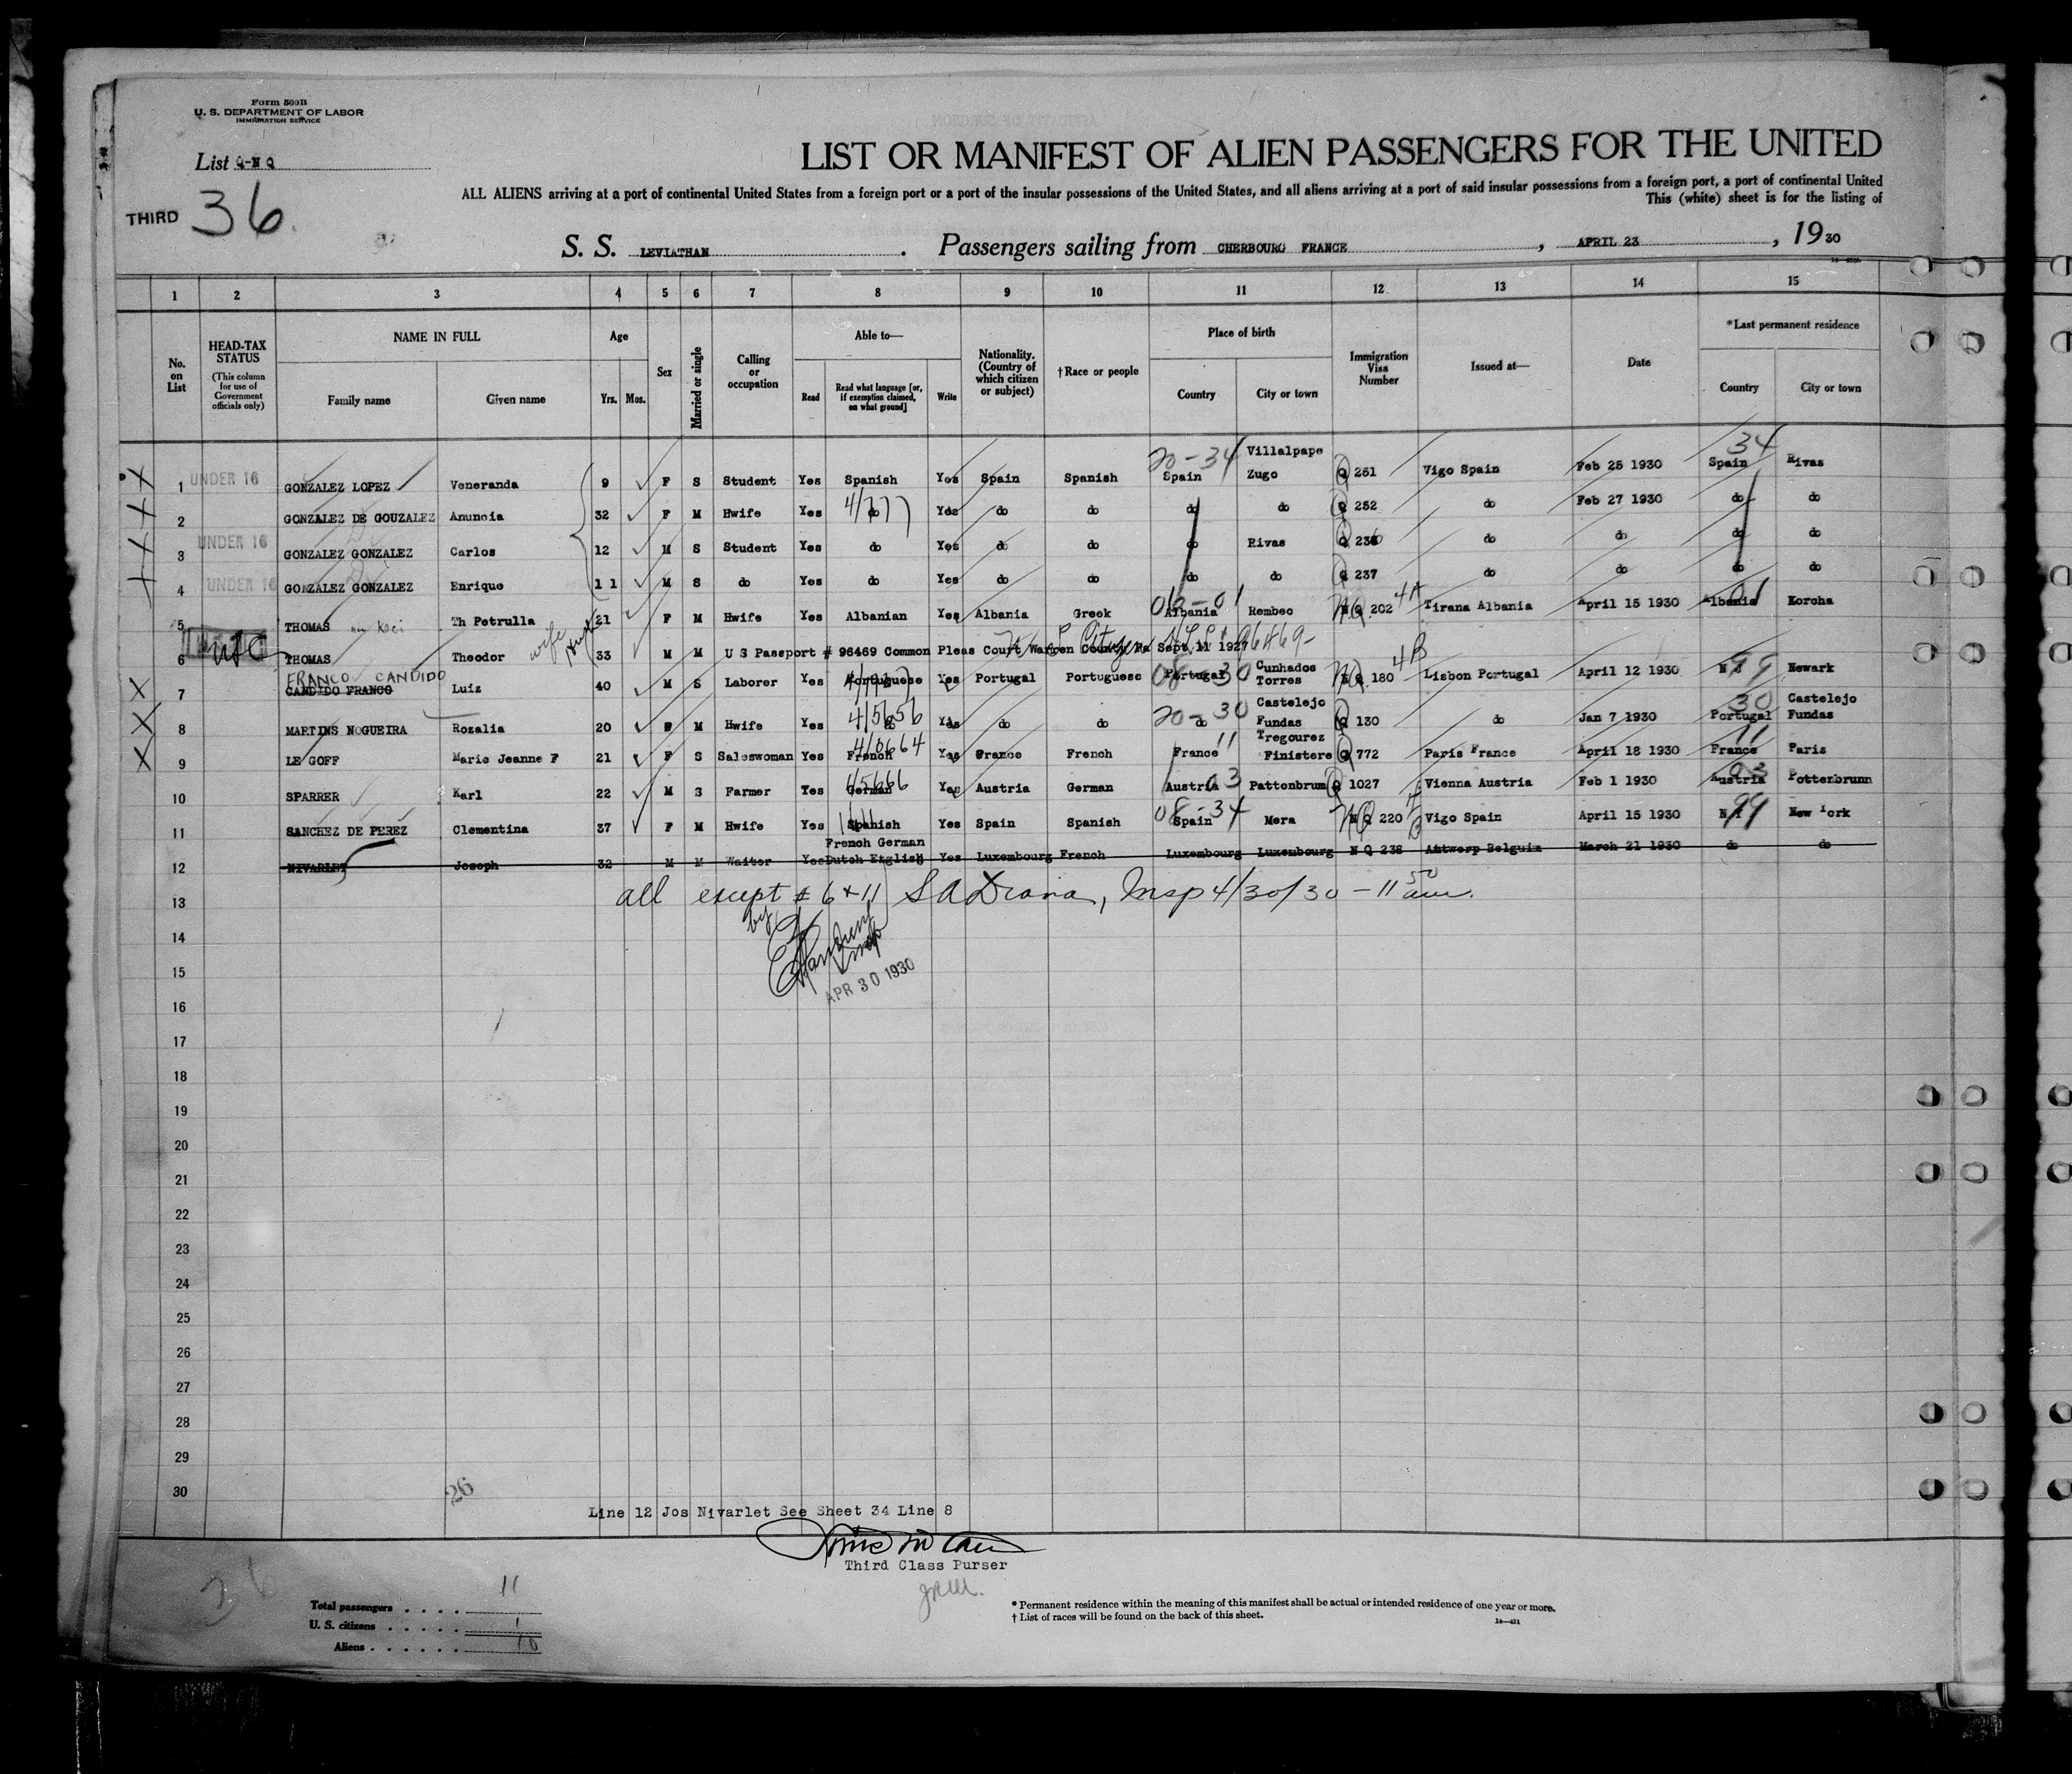 Form 500B
U. S. DEPARTMENT OF LABOR
IMMIGRATION SERVICE
List Q-N Q
THIRD 36
LIST OR MANIFEST OF ALIEN PASSENGERS FOR THE UNITED
ALL ALIENS arriving at a port of continental United States from a foreign port or a port of the insular possessions of the United States, and all aliens arriving at a port of said insular possessions from a foreign port, a port of continental United
This (white) sheet is for the listing of
S. S. LEVIATHAN. Passengers sailing from CHERBOURG FRANCE, APRIL 23, 1930
1 2 3 4 5 6 7 8 9 10 11 12 13 14 15
No. on List
HEAD-TAX STATUS (This column for use of Government officials only)
NAME IN FULL Family name Given name
Age Yrs. Mos.
Sex
Married or single
Calling or occupation
Able to— Read Read what language [or, if exemption claimed, on what ground] Write
Nationality. (Country of which citizen or subject)
†Race or people
Place of birth Country City or town
Immigration Visa Number
Issued at—
Date
*Last permanent residence Country City or town
1 UNDER 16 GONZALEZ LOPEZ Veneranda 9 F S Student Yes Spanish Yes Spain Spanish 20-34 Spain Villalpape Zugo Q 251 Vigo Spain Feb 25 1930 34 Spain Rivas
2 GONZALEZ DE GOUZALEZ Anuncia 32 F M Hwife Yes do Yes do do do do Q 252 do Feb 27 1930 do do
3 UNDER 16 GONZALEZ GONZALEZ Carlos 12 M S Student Yes do Yes do do do Rivas Q 236 do do do do
4 UNDER 16 GONZALEZ GONZALEZ Enrique 11 M S do Yes do Yes do do do do Q 237 do do do do
5 THOMAS Th Petrulla 21 F M Hwife Yes Albanian Yes Albania Greek Albania Rembec N Q 202 4A Tirana Albania April 15 1930 Albania 01 Korcha
wife
6 USC THOMAS Theodor 33 M M U S Passport # 96469 Common Pleas Court Warren County Pa Sept 11 1927
FRANCO CANDIDO
7 CANDIDO FRANCO Luiz 40 M S Laborer Yes Portuguese Yes Portugal Portuguese 08-30 Portugal Cunhados Torres N Q 180 4B Lisbon Portugal April 12 1930 N J 99 Newark
8 MARTINS NOGUEIRA Rozalia 20 F M Hwife Yes 4/5656 do Yes do do 20-30 do Castelejo Fundas Q 130 do Jan 7 1930 30 Portugal Castelejo Fundas
9 LE GOFF Marie Jeanne F 21 F S Saleswoman Yes French Yes France French France 11 Tregourez Finistere Q 772 Paris France April 18 1930 11 France Paris
10 SPARRER Karl 22 M S Farmer Yes German Yes Austria German Austria 03 Pattenbrum Q 1027 Vienna Austria Feb 1 1930 03 Austria Pottenbrunn
11 SANCHEZ DE PEREZ Clementina 37 F M Hwife Yes Spanish Yes Spain Spanish 08-34 Spain Mera N Q 220 Vigo Spain April 15 1930 N Y 99 New York
12 NIVARLET Joseph 32 M M Waiter Yes French German Dutch English Yes Luxembourg French Luxembourg Luxembourg N Q 238 Antwerp Belguim March 21 1930 do do
13 all except # 6 + 11 Insp 4/30/30 - 11 50 am.
14 by
15 APR 30 1930
16
17
18
19
20
21
22
23
24
25
26
27
28
29
30
26
Line 12 Jos Nivarlet See Sheet 34 Line 8
Third Class Purser
Total passengers 11
U. S. citizens 1
Aliens 10
* Permanent residence within the meaning of this manifest shall be actual or intended residence of one year or more.
† List of races will be found on the back of this sheet.